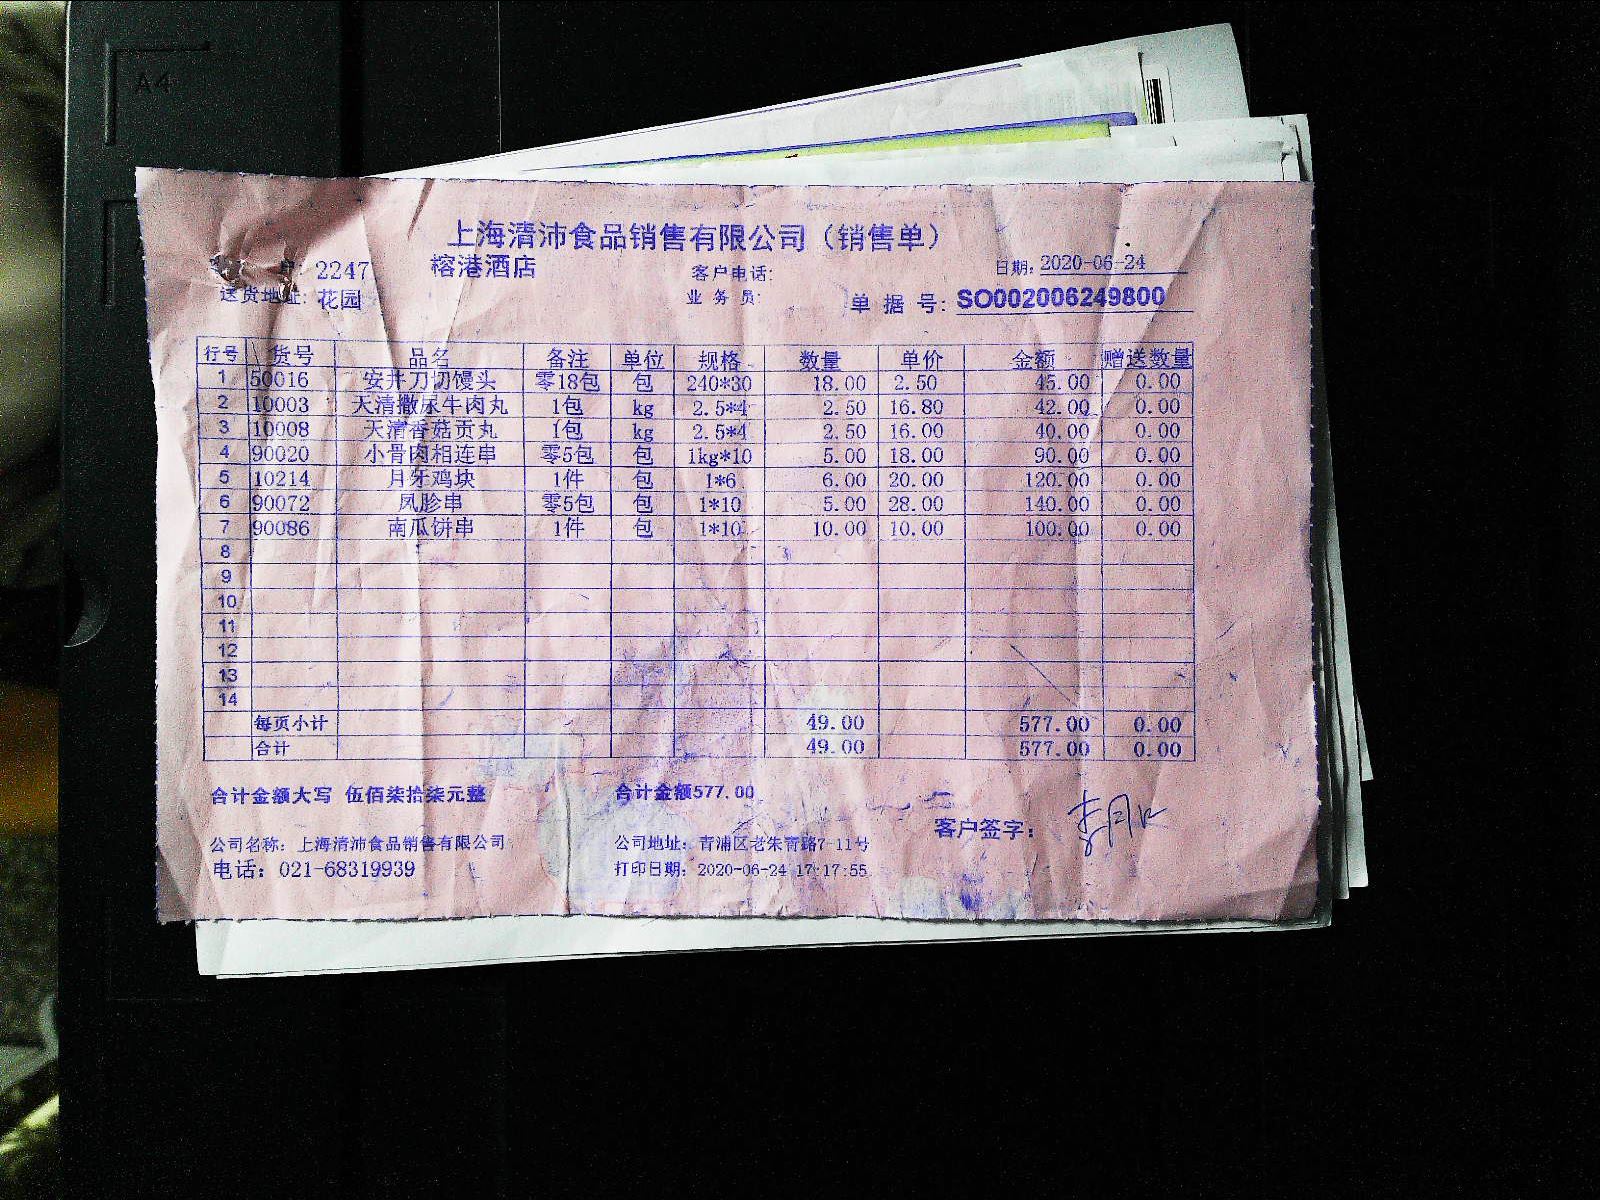 A4
上海清沛食品销售有限公司（销售单）
户: 2247 榕港酒店 客户电话: 日期: 2020-06-24
送货地址: 花园 业务员: 单据号: SO002006249800
行号 货号 品名 备注 单位 规格 数量 单价 金额 赠送数量
1 50016 安井刀切馒头 零18包 包 240*30 18.00 2.50 45.00 0.00
2 10003 天清撒尿牛肉丸 1包 kg 2.5*4 2.50 16.80 42.00 0.00
3 10008 天清香菇贡丸 1包 kg 2.5*4 2.50 16.00 40.00 0.00
4 90020 小骨肉相连串 零5包 包 1kg*10 5.00 18.00 90.00 0.00
5 10214 月牙鸡块 1件 包 1*6 6.00 20.00 120.00 0.00
6 90072 凤胗串 零5包 包 1*10 5.00 28.00 140.00 0.00
7 90086 南瓜饼串 1件 包 1*10 10.00 10.00 100.00 0.00
8
9
10
11
12
13
14
每页小计 49.00 577.00 0.00
合计 49.00 577.00 0.00
合计金额大写 伍佰柒拾柒元整 合计金额577.00
客户签字:
公司名称: 上海清沛食品销售有限公司 公司地址: 青浦区老朱青路7-11号
电话: 021-68319939 打印日期: 2020-06-24 17:17:55